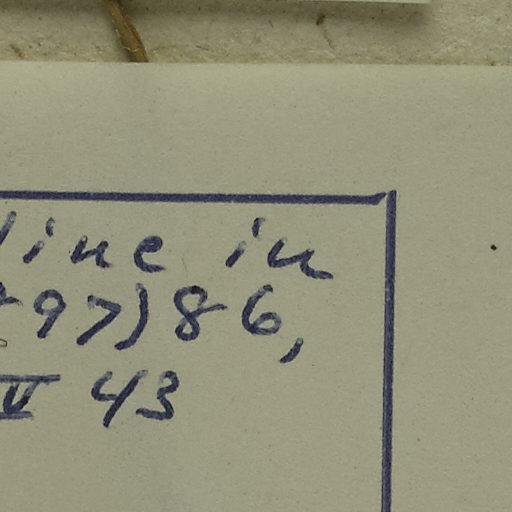 line in
897) 86,
V 43